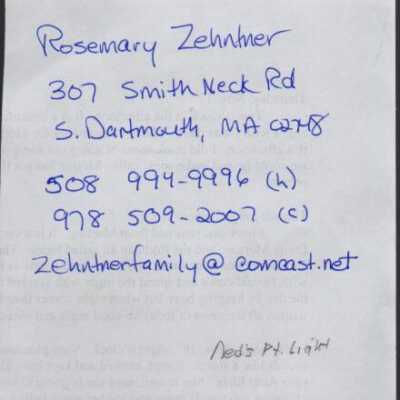 Rosemary Zehntner
307 Smith Neck Rd
S. Dartmouth, MA 02748
508 994-9996 (h)
978 509-2007 (c)
zehntnerfamily@comcast.net
Ned's Pt. Light